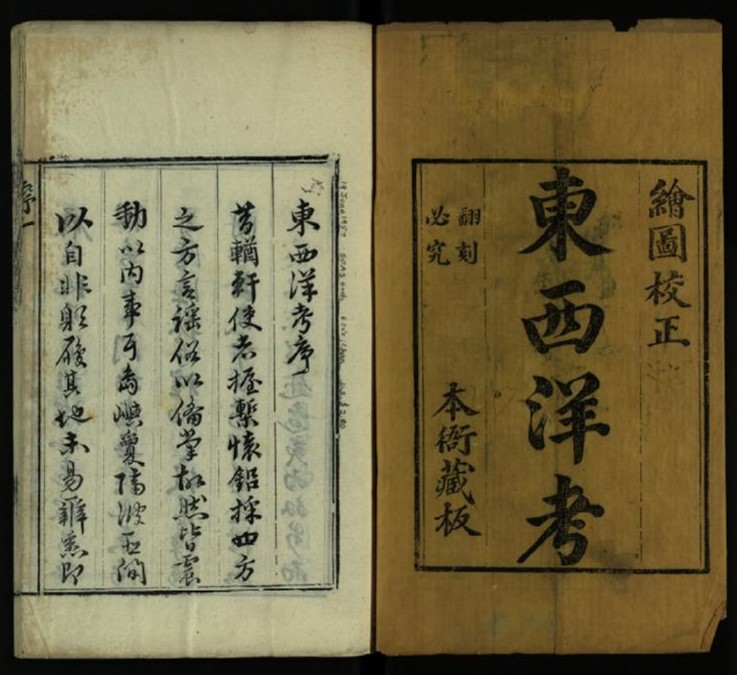 繪圖校正
東西洋考
翻刻
必究
本衙藏板
東西洋考序
昔輶軒使者握槧懷鉛採四方
之方言謡俗以備掌故然皆寰
以内事耳島嶼夐隔波
以自非躬履其地未易辨悉即
序一